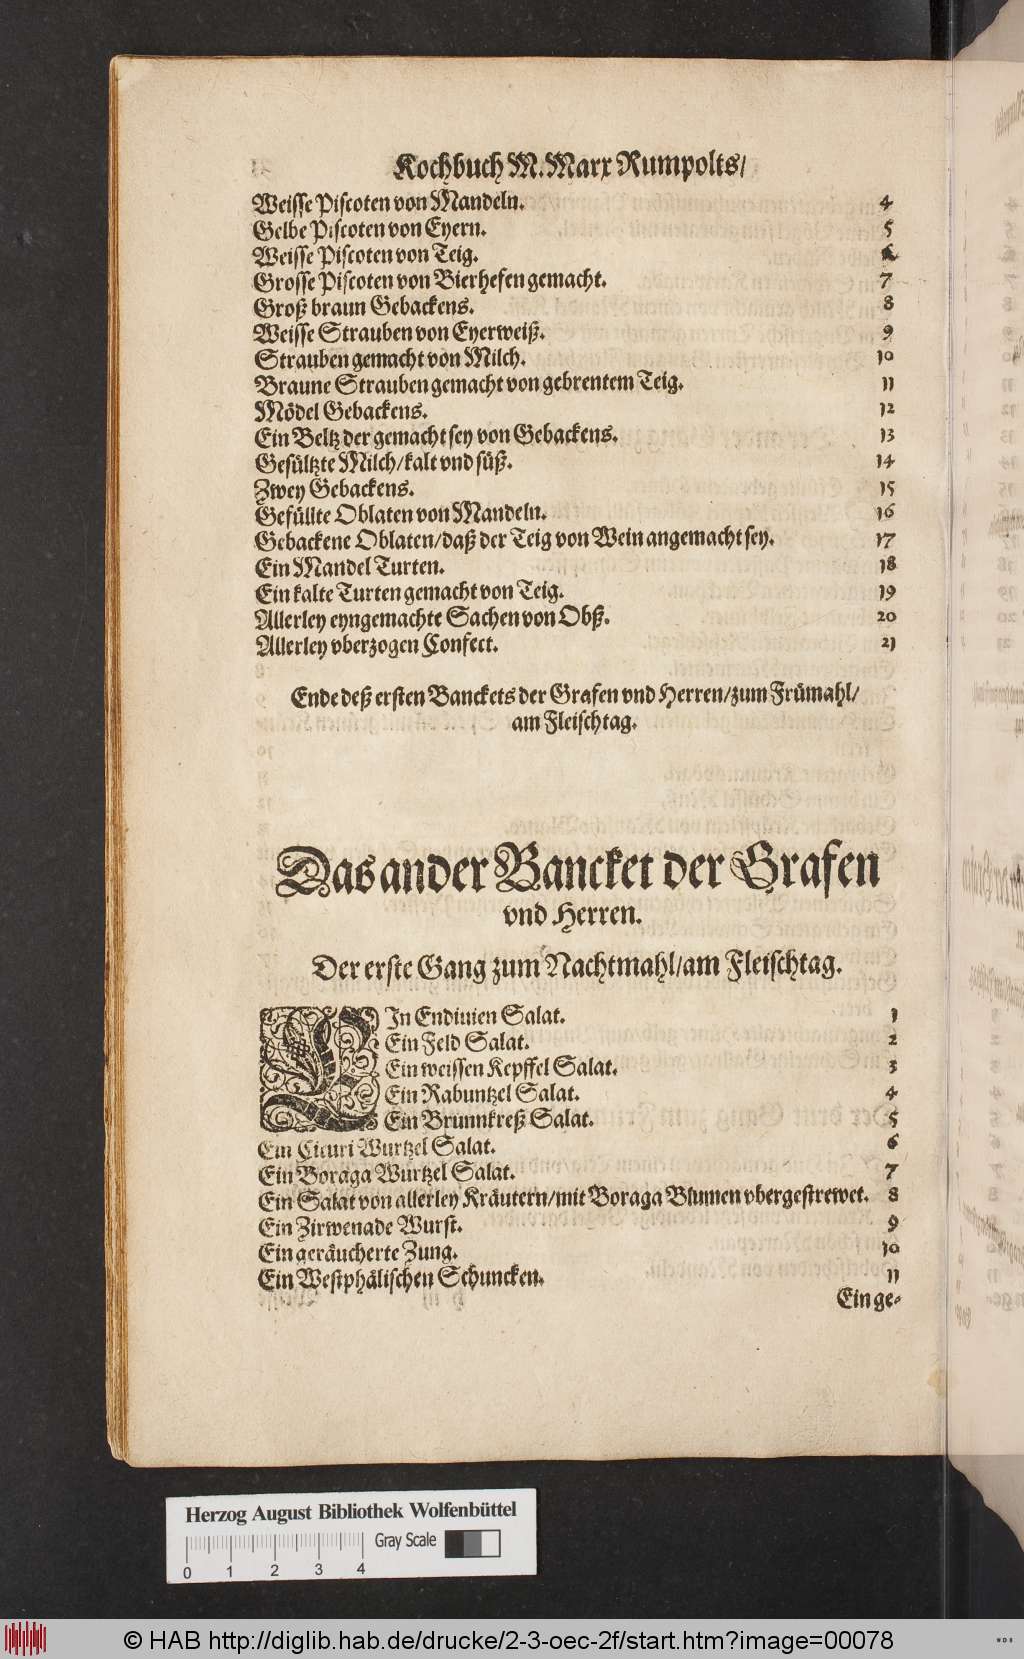 Kochbuch M. Marx Rumpolts/
Weisse Piscoten von Mandeln. 4
Gelbe Piscoten von Eyern. 5
Weisse Piscoten von Teig. 6
Grosse Piscoten von Bierhefen gemacht. 7
Groß braun Gebackens. 8
Weisse Strauben von Eyerweiß. 9
Strauben gemacht von Milch. 10
Braune Strauben gemacht von gebrentem Teig. 11
Mödel Gebackens. 12
Ein Beltz der gemacht sey von Gebackens. 13
Gesültzte Milch/kalt vnd süß. 14
Zwey Gebackens. 15
Gefüllte Oblaten von Mandeln. 16
Gebackene Oblaten/daß der Teig von Wein angemacht sey. 17
Ein Mandel Turten. 18
Ein kalte Turten gemacht von Teig. 19
Allerley eyngemachte Sachen von Obß. 20
Allerley vberzogen Confect. 21
Ende deß ersten Banckets der Grafen vnd Herren/zum Frümahl/
am Fleischtag.
Das ander Bancket der Grafen
vnd Herren.
Der erste Gang zum Nachtmahl/am Fleischtag.
EIn Endiuien Salat. 1
Ein Feld Salat. 2
Ein weissen Kepffel Salat. 3
Ein Rabuntzel Salat. 4
Ein Brunnkreß Salat. 5
Ein Cicuri Wurtzel Salat. 6
Ein Boraga Wurtzel Salat. 7
Ein Salat von allerley Kräutern/mit Boraga Blumen vbergestrewet. 8
Ein Zirwenade Wurst. 9
Ein geräucherte Zung. 10
Ein Westphälischen Schuncken. 11
Ein ge-
Herzog August Bibliothek Wolfenbüttel
Gray Scale
0 1 2 3 4
© HAB http://diglib.hab.de/drucke/2-3-oec-2f/start.htm?image=00078